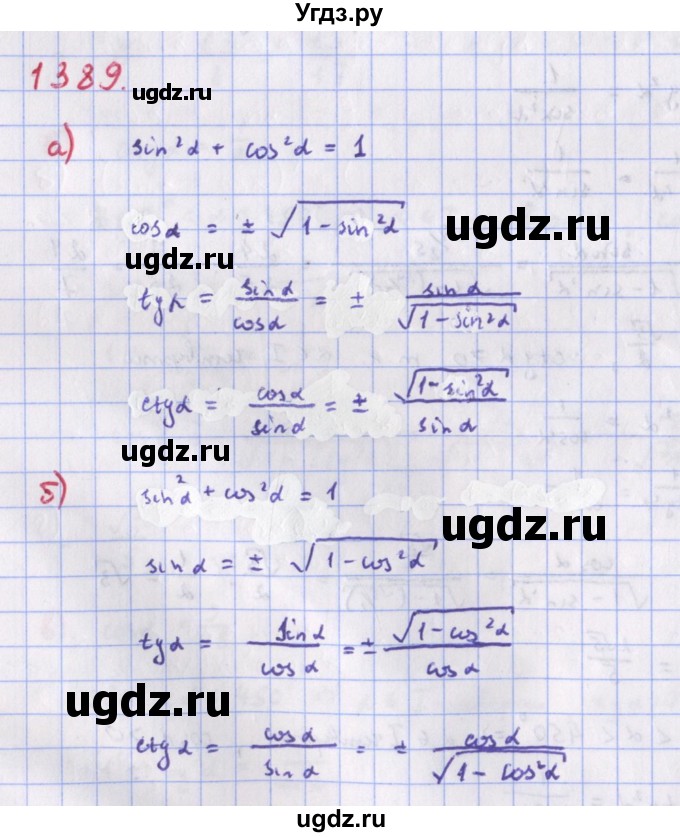 Угдз.ру
1389.
ugdz.ru
а) sin²α + cos²α = 1
cosα = ± √(1 - sin²α)
ugdz.ru
ugdz.ru
tgα = sinα/cosα = ± sinα/√(1 - sin²α)
ctgα = cosα/sinα = ± √(1 - sin²α)/sinα
ugdz.ru
б) sin²α + cos²α = 1
ugdz.ru
sinα = ± √(1 - cos²α)
tgα = sinα/cosα = ± √(1 - cos²α)/cosα
ugdz.ru
ctgα = cosα/sinα = ± cosα/√(1 - cos²α)